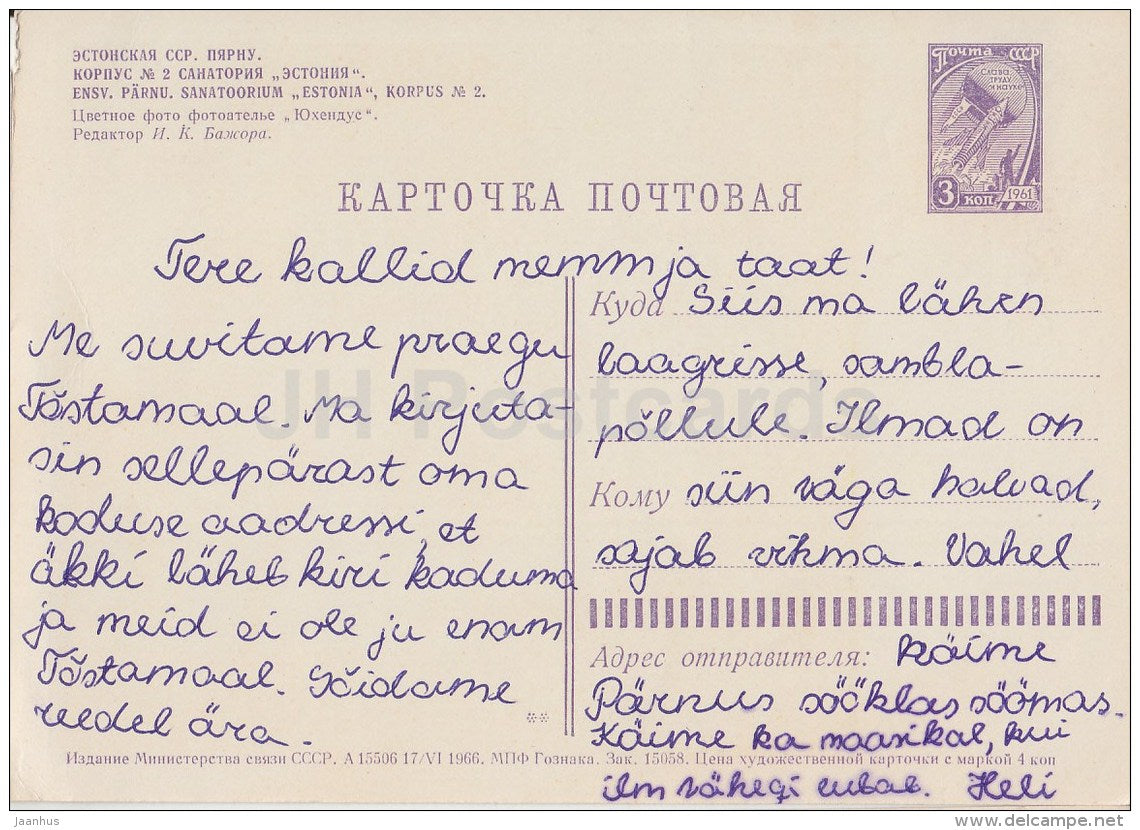 ЭСТОНСКАЯ ССР. ПЯРНУ.
КОРПУС № 2 САНАТОРИЯ „ЭСТОНИЯ“.
ENSV. PÄRNU. SANATOORIUM „ESTONIA“, KORPUS № 2.
Цветное фото фотоателье „Юхендус“.
Редактор И. К. Бажора.
Почта СССР
СЛАВА
ТРУДУ
И НАУКЕ
3 коп 1961
КАРТОЧКА ПОЧТОВАЯ
Tere kallid memm ja taat!
Me suvitame praegu
Tõstamaal. Ma kirjuta-
sin sellepärast oma
koduse aadressi, et
äkki läheb kiri kaduma
ja meid ei ole ju enam
Tõstamaal. Sõidame
reedel ära.
Куда Siis ma lähen
laagrisse, sambla-
põllule. Ilmad on
Кому siin väga halvad,
sajab vihma. Vahel
Адрес отправителя: käime
Pärnus sööklas söömas.
Käime ka maasikal, kui
ilm vähegi lubab. Heli
**
Издание Министерства связи СССР. А 15506 17/VI 1966. МПФ Гознака. Зак. 15058. Цена художественной карточки с маркой 4 коп
JH Postcards
Jaanhus
www.delcampe.net